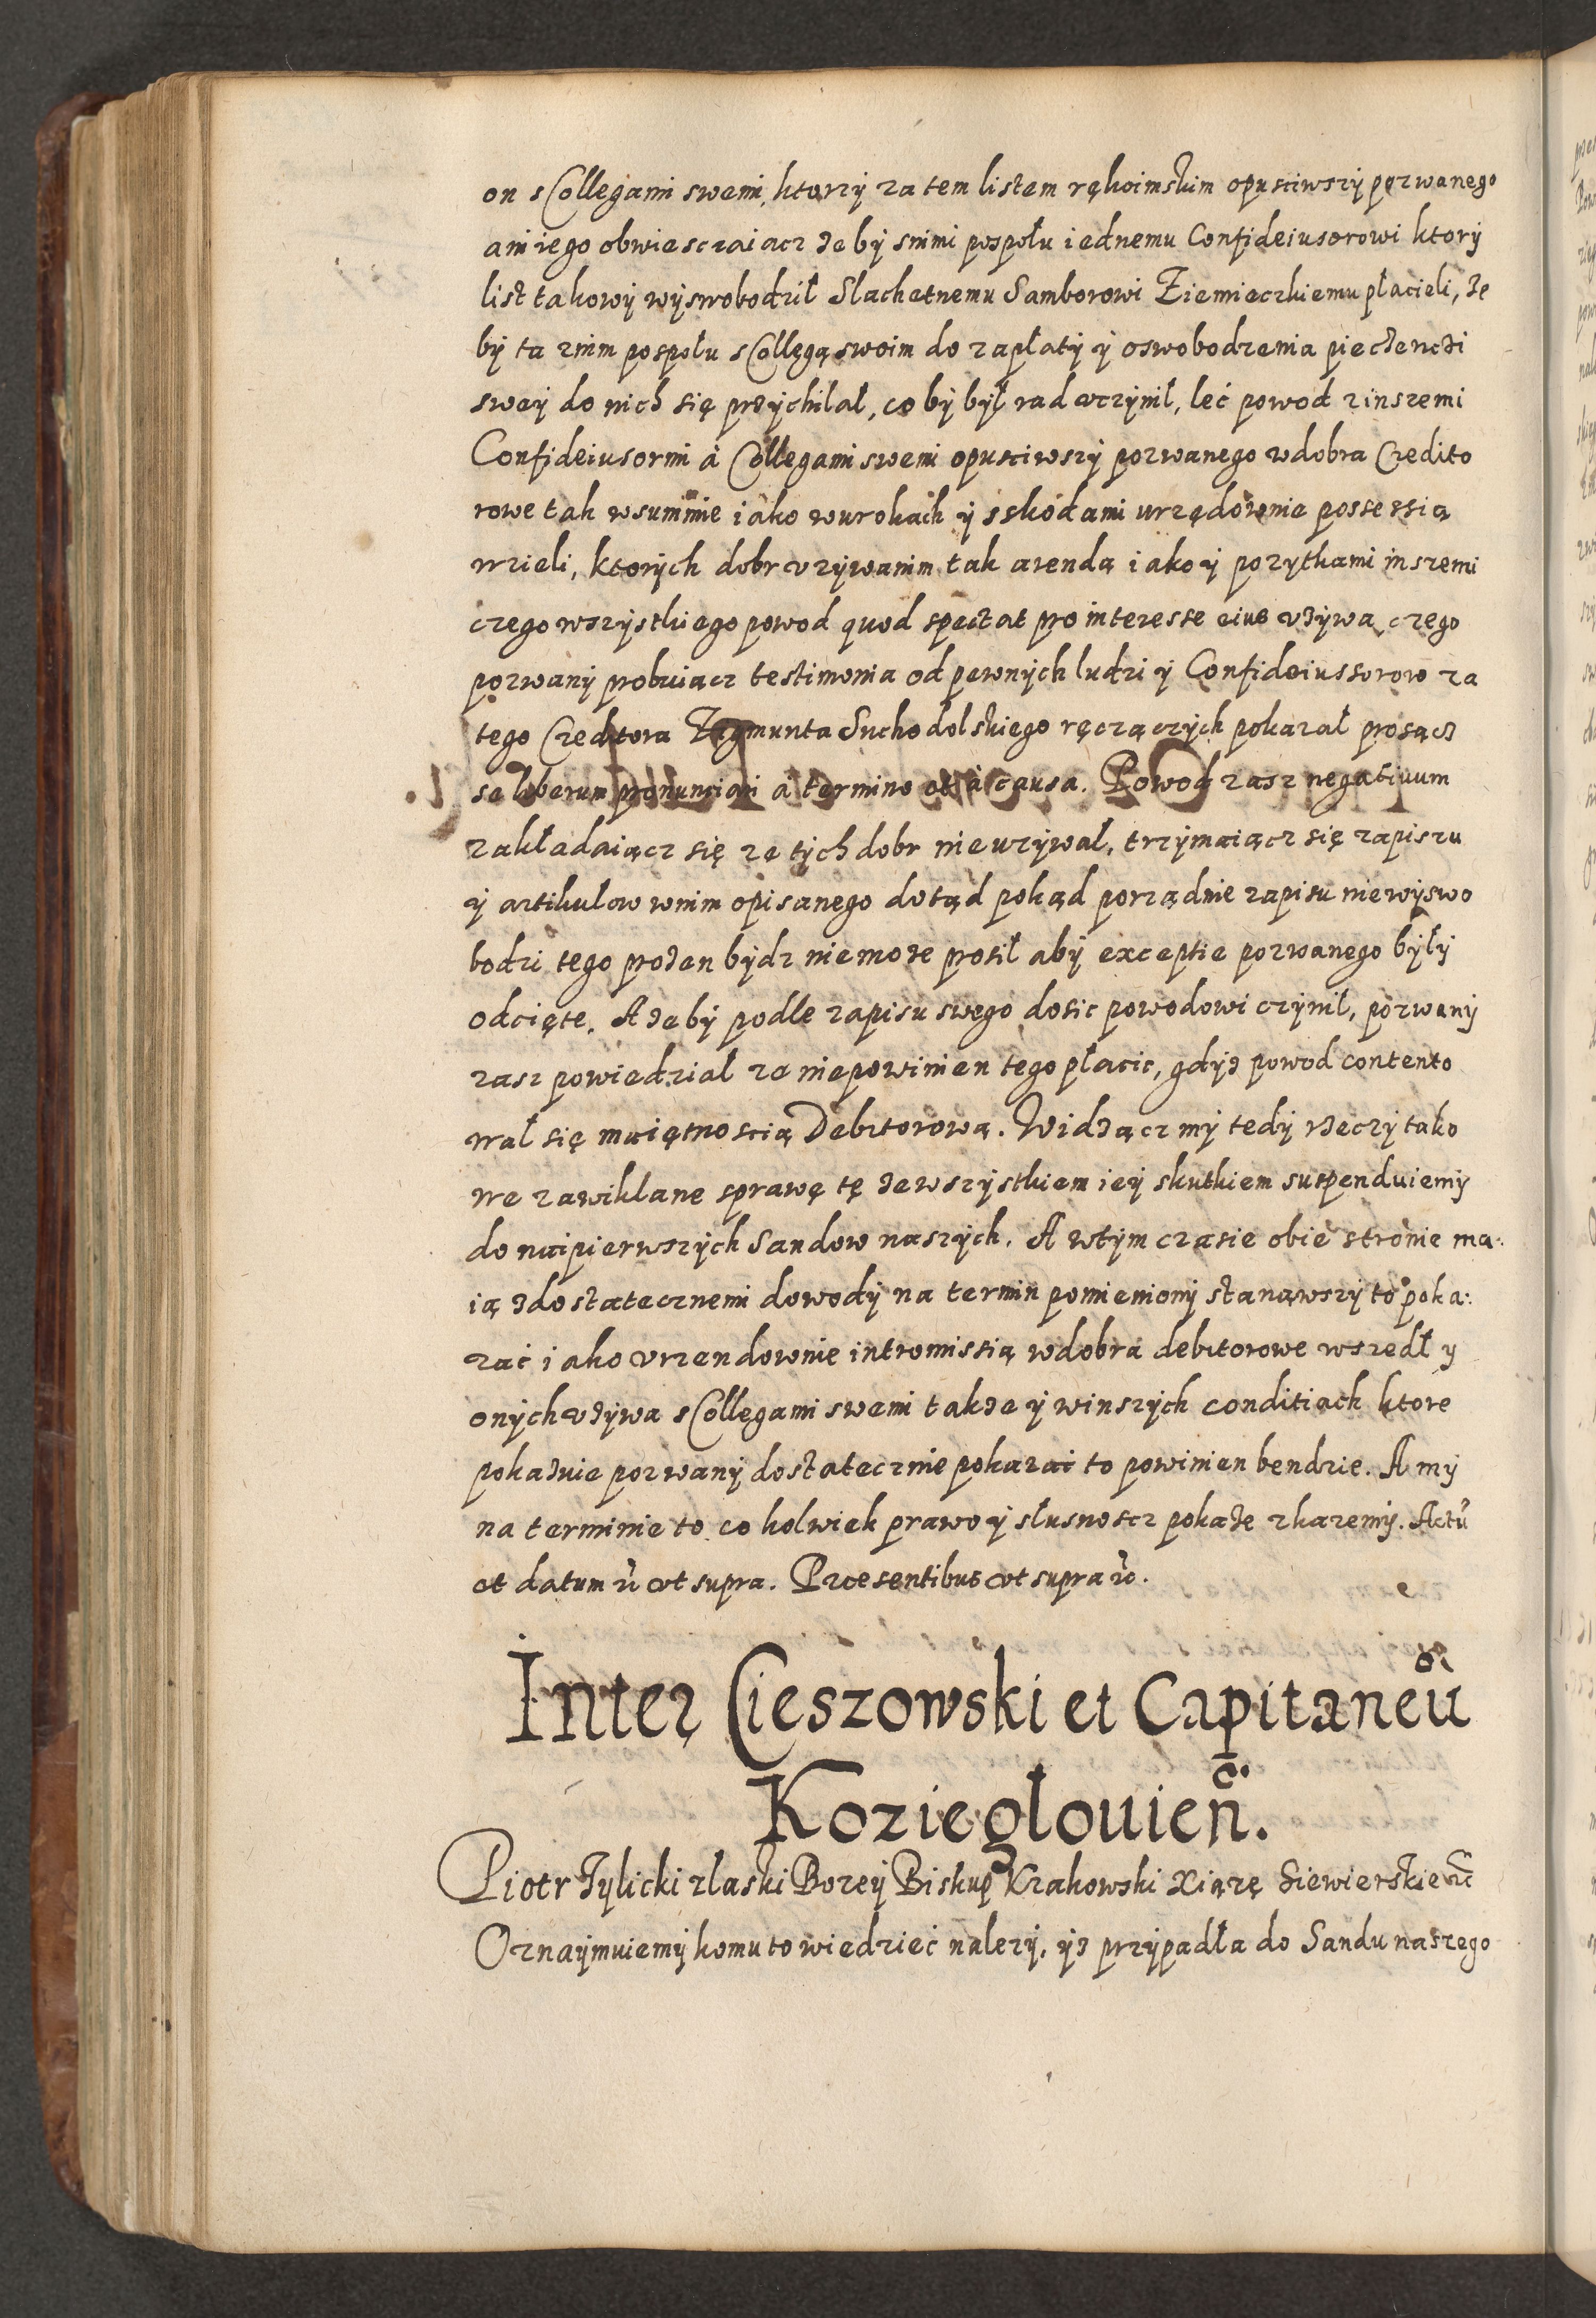 on s Collegami swemi, ktorzy za tem listem rękoimskim opusciwszy pozwanego
ani iego obwiesczaiacz że by snimi pospołu iednemu Confideiusorowi ktory
list takowy wyswobodził Slachetnemu Samborowi Ziemieczkiemu płacieli, że
by ta znim pospołu s Collęgą swoim do zapłaty y oswobodzenia pieczenczi
swey do nich się przychilał, co by był rad uczynił, lec powod zinszemi
Confideiusormi à Collegami swemi opusciwszy pozwanego w dobra Credito
rowe tak wsummie iako wurokach y sskodami urzędownie possessią
wzieli, ktorych dobr vzywanim tak arendą iako y pozytkami inszemi
czego wszystkiego powod quod spectat pro interesse eius vżywa czego
pozwany probuiącz testimonia od pewnych ludzi y Confideiussorow za
tego Creditora Zygmunta Suchodolskiego ręcząnczych pokazał prosącz
se liberum pronunciari à termino et à causa. Powod zasz negatiuum
zakładaiącz się ze tych dobr nie uzywał, trzymaiącz się zapiszu
y artikulow wnim opisanego dotąd pokąd porządnie zapisu niewyswo
bodzi tego prożen bydz niemoże prosił aby exceptie pozwanego były
odcięte. A żeby podle zapisu swego dosic powodowi czynił, pozwany
zasz powiedział ze niepowinien tego płacic, gdyż powod contento
wał się maiętnoscią Debitorową. Widżącz my tedy rżeczy tako
we zawiklane sprawę tę ze wszystkiem iey skutkiem suspenduiemy
do naipierwszych Sandow naszych. A wtym czasie obie stronie ma:
ią zdostatecznemi dowody na termin pomieniony stanąwszy to poka:
zać iako vrzendownie intromissią wdobra debitorowe wszedł y
onych vżywa s Collęgami swemi także y winszych conditiach ktore
pokażuie pozwany dostatecznie pokazać to powinien bendzie. A my
na terminie to co kolwiek prawo y słusnoscz pokaże zkazemy. Actū
et datum ň ut supra. Præsentibus ut supra ň.
Inter Cieszowski et Capitaneū
Koziegłouieñ.
Piotr Tylicki zlaski Bozey Biskup Krakowski Xiązę Siewierskie ꝛc
Oznaymuiemy komu to wiedzieć nalezy, yż przypadła do Sandu naszego